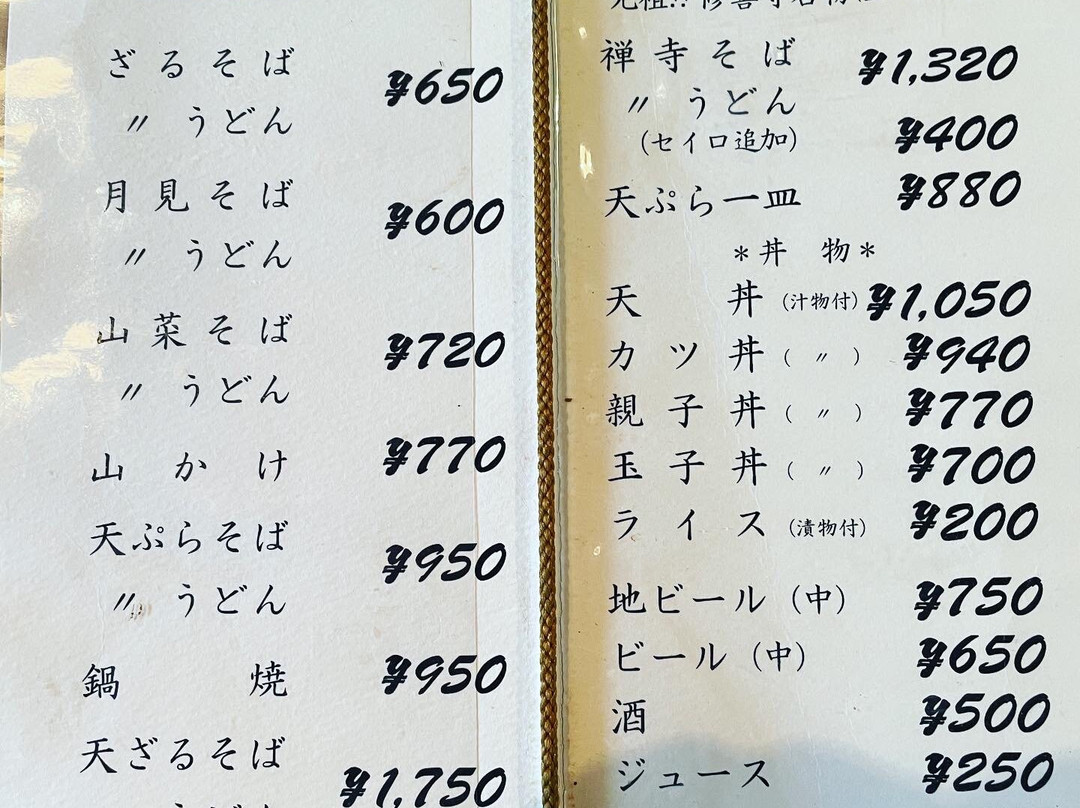 ざるそば ¥650
〃 うどん
月見そば ¥600
〃 うどん
山菜そば ¥720
〃 うどん
山かけ ¥770
天ぷらそば ¥950
〃 うどん
鍋焼 ¥950
天ざるそば ¥1,750
うどん
禅寺そば ¥1,320
〃 うどん
(セイロ追加) ¥400
天ぷら一皿 ¥880
*丼 物*
天丼 (汁物付) ¥1,050
カツ丼 (〃) ¥940
親子丼 (〃) ¥770
玉子丼 (〃) ¥700
ライス (漬物付) ¥200
地ビール (中) ¥750
ビール (中) ¥650
酒 ¥500
ジュース ¥250